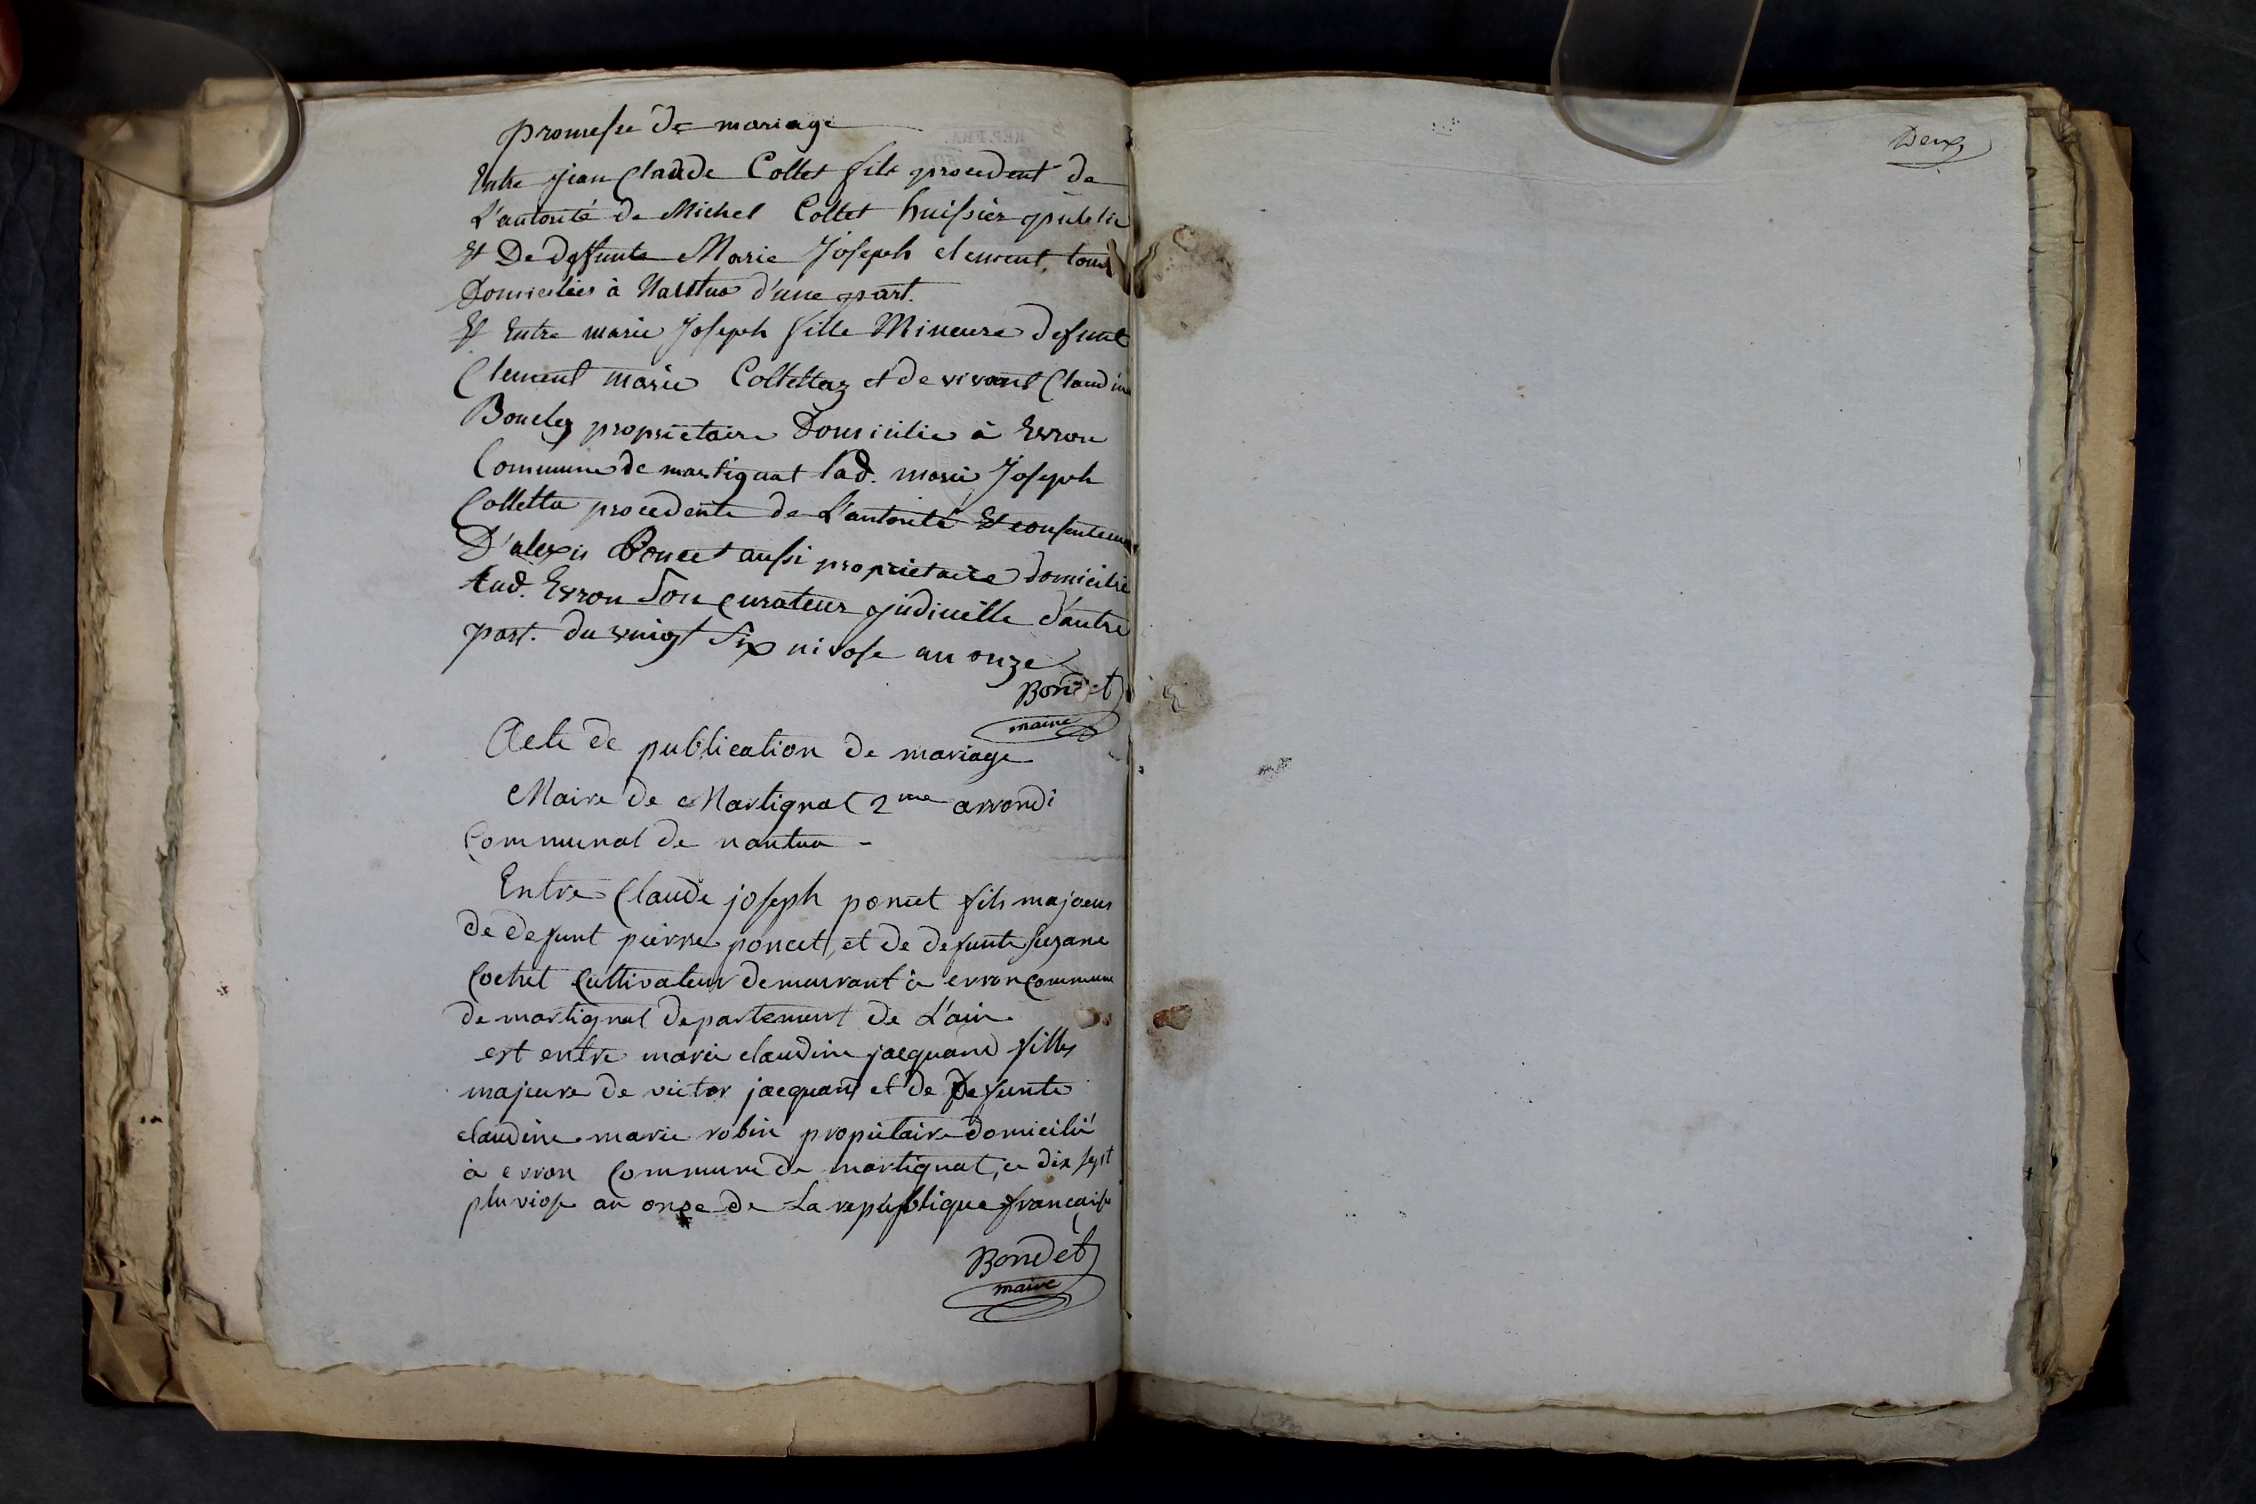 promesse de mariage
Entre jean Claude Collet fils procedent de
L'autorité de Michel Collet huissier public
Et De deffunte Marie Joseph clement, tous
Domiciliés à Nantua d'une part.
Et Entre marie Joseph fille Mineure defunt
Clement marie Collettaz et de vivant Claudine
Boucley proprietaire Domicilie à Erron
Commune de martignat lad. marie Joseph
Colletta procedente de L'autorité Et consentement
D'alexis Poncet aussi proprietaire domicilié
aud. Erron Son Curateur judicielle d'autre
part. du vingt Six nivose an onze
Bondet
maire
Acte de publication de mariage
Maire de Martignat 2me arrondi
Communal de nantua -
Entre Claude joseph poncet fils majeur
de defunt pierre poncet, et de defunte suzane
Cochet Cultivateur demeurant à erron Commune
de martignat departement de L'ain
est entre marie claudine jacquand filles
majeure de victor jacquand et de Defunte
claudine marie robin propietaire domicilié
à erron Commune de martignat, ce dix sept
pluviose an onze de La republique francaise
Bondet
maire
Deux